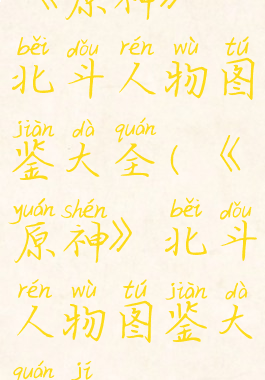 《原神》
běi dǒu rén wù tú
北斗人物图
jiàn dà quán
鉴大全(《
yuán shén běi dǒu
原神》北斗
rén wù tú jiàn dà
人物图鉴大
quán jí